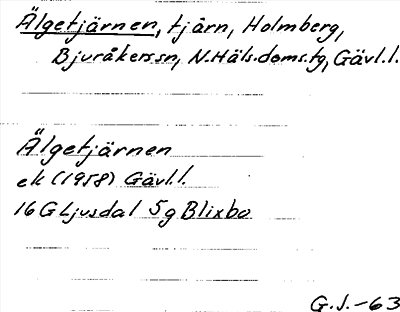 Älgetjärnen, tjärn, Holmberg,
Bjuråkers sn, N. Häls. doms. tg, Gävl. l.
Älgetjärnen
ek (1958) Gävl. l.
16 G Ljusdal 5g Blixbo
G. J. -63